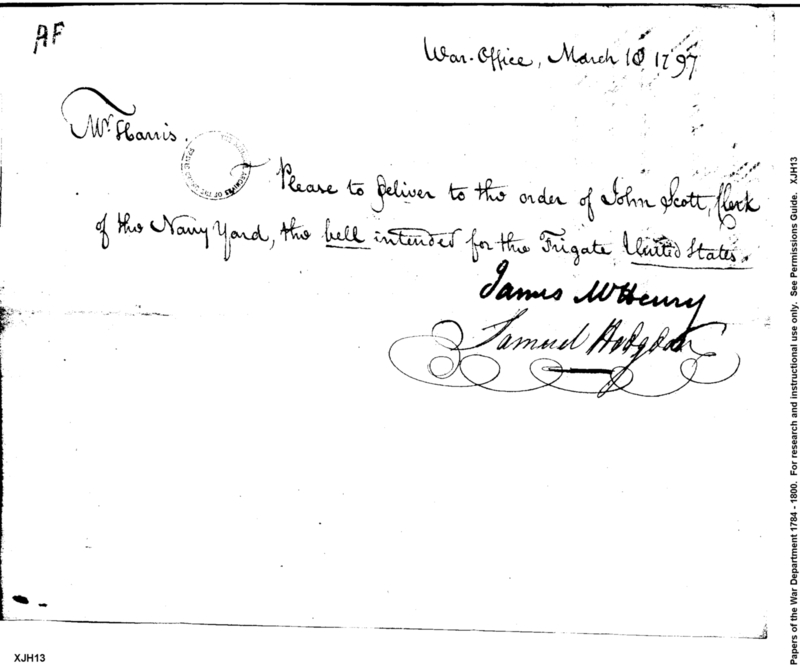 AF
War-Office, March 10 1797
Mr Harris.
Please to deliver to the order of John Scott, Clerk
of the Navy Yard, the bell intended for the Frigate United States.
James McHenry
Samuel Hodgdon
XJH13
Papers of the War Department 1784 - 1800. For research and instructional use only. See Permissions Guide. XJH13